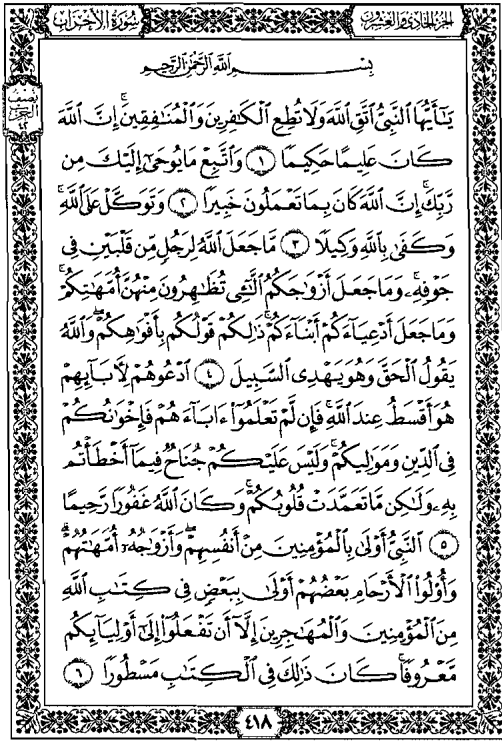 الجزء الحادي والعشرون
سورة الأحزاب
نصف
الحزب
٤٢
بِسْمِ اللَّهِ الرَّحْمَٰنِ الرَّحِيمِ
يَٰٓأَيُّهَا النَّبِيُّ اتَّقِ اللَّهَ وَلَا تُطِعِ الْكَٰفِرِينَ وَالْمُنَٰفِقِينَۗ إِنَّ اللَّهَ
كَانَ عَلِيمًا حَكِيمًا ١ وَاتَّبِعْ مَا يُوحَىٰٓ إِلَيْكَ مِن
رَّبِّكَۚ إِنَّ اللَّهَ كَانَ بِمَا تَعْمَلُونَ خَبِيرًا ٢ وَتَوَكَّلْ عَلَى اللَّهِۚ
وَكَفَىٰ بِاللَّهِ وَكِيلًا ٣ مَّا جَعَلَ اللَّهُ لِرَجُلٍ مِّن قَلْبَيْنِ فِي
جَوْفِهِۦۚ وَمَا جَعَلَ أَزْوَٰجَكُمُ الَّٰٓـِٔي تُظَٰهِرُونَ مِنْهُنَّ أُمَّهَٰتِكُمْۚ
وَمَا جَعَلَ أَدْعِيَآءَكُمْ أَبْنَآءَكُمْۚ ذَٰلِكُمْ قَوْلُكُم بِأَفْوَٰهِكُمْۖ وَاللَّهُ
يَقُولُ الْحَقَّ وَهُوَ يَهْدِي السَّبِيلَ ٤ ادْعُوهُمْ لِأٓبَآئِهِمْ
هُوَ أَقْسَطُ عِندَ اللَّهِۚ فَإِن لَّمْ تَعْلَمُوٓا۟ ءَابَآءَهُمْ فَإِخْوَٰنُكُمْ
فِي الدِّينِ وَمَوَٰلِيكُمْۚ وَلَيْسَ عَلَيْكُمْ جُنَاحٌ فِيمَآ أَخْطَأْتُم
بِهِۦ وَلَٰكِن مَّا تَعَمَّدَتْ قُلُوبُكُمْۚ وَكَانَ اللَّهُ غَفُورًا رَّحِيمًا
٥ النَّبِيُّ أَوْلَىٰ بِالْمُؤْمِنِينَ مِنْ أَنفُسِهِمْۖ وَأَزْوَٰجُهُۥٓ أُمَّهَٰتُهُمْۗ
وَأُو۟لُوا۟ الْأَرْحَامِ بَعْضُهُمْ أَوْلَىٰ بِبَعْضٍ فِي كِتَٰبِ اللَّهِ
مِنَ الْمُؤْمِنِينَ وَالْمُهَٰجِرِينَ إِلَّآ أَن تَفْعَلُوٓا۟ إِلَىٰٓ أَوْلِيَآئِكُم
مَّعْرُوفًاۚ كَانَ ذَٰلِكَ فِي الْكِتَٰبِ مَسْطُورًا ٦
٤١٨